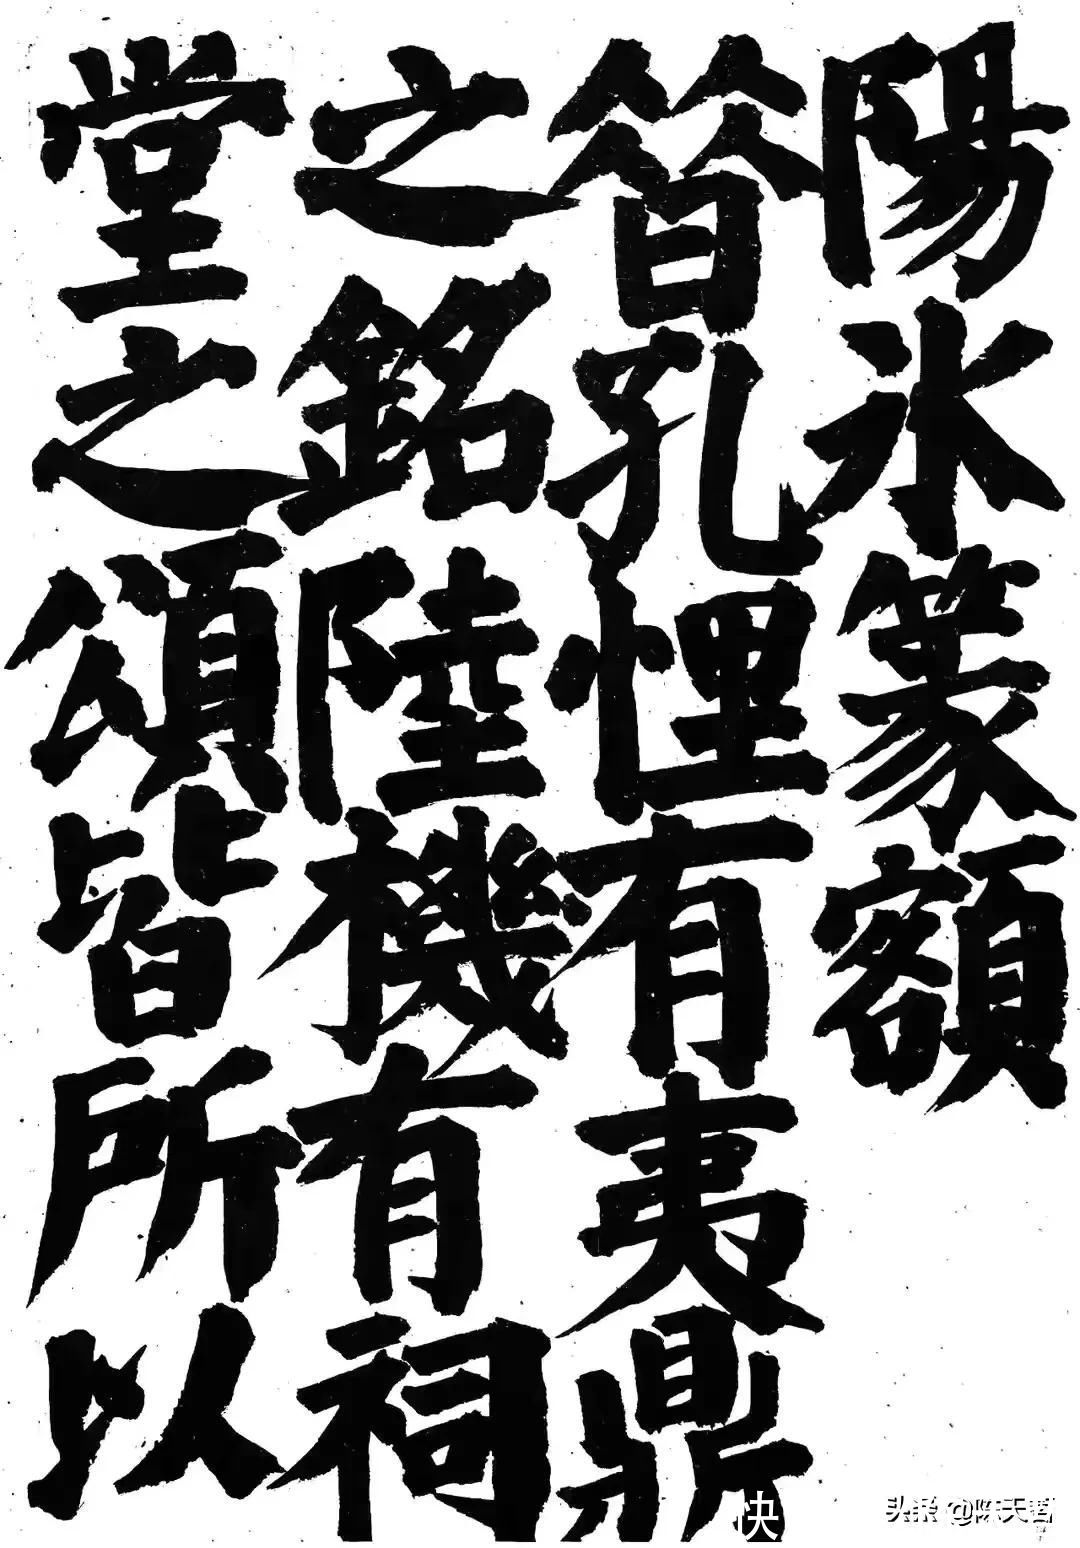 陽氷篆額
昔孔悝有夷鼎
之銘陸機有祠
堂之頌皆所以
快
头条 @陈天哲